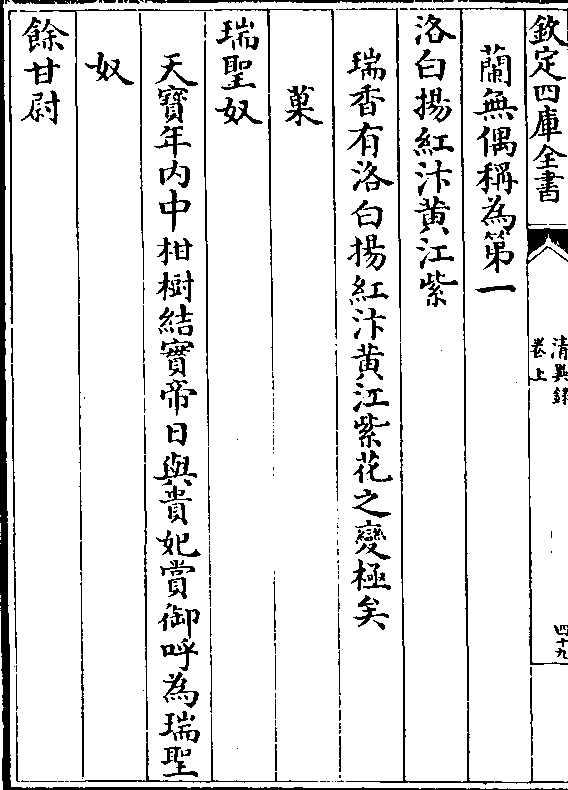 欽定四庫全書
清異錄
卷上
四十九
蘭無偶稱為第一
洛白揚紅汴黄江紫
瑞香有洛白揚紅汴黄江紫花之變極矣
菓
瑞聖奴
天寶年内中柑樹結實帝日與貴妃賞御呼為瑞聖
奴
餘甘尉